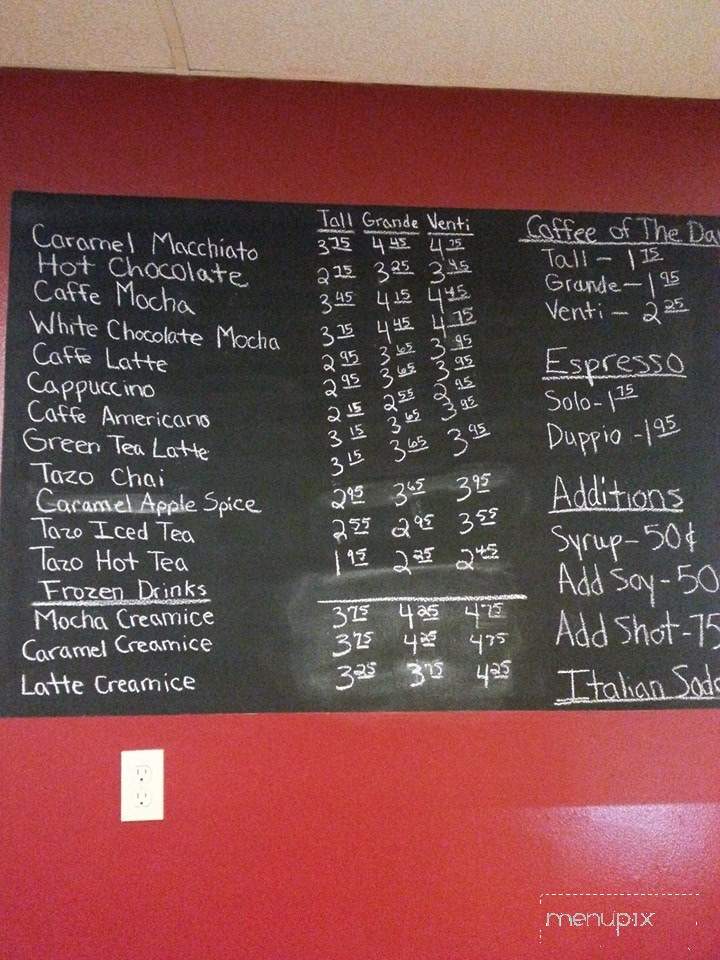 Tall Grande Venti
Caramel Macchiato 375 445 475
Hot Chocolate 275 325 345
Caffe Mocha 345 415 445
White Chocolate Mocha 375 445 475
Caffe Latte 295 365 395
Cappuccino 295 365 395
Caffe Americano 215 255 295
Green Tea Latte 315 365 395
Tazo Chai 315 365 395
Caramel Apple Spice 295 365 395
Tazo Iced Tea 255 295 355
Tazo Hot Tea 195 225 245
Frozen Drinks
Mocha Creamice 375 425 475
Caramel Creamice 375 425 475
Latte Creamice 325 375 425
Coffee of The Da
Tall - 175
Grande - 195
Venti - 225
Espresso
Solo - 175
Duppio - 195
Additions
Syrup - 50¢
Add Soy - 50
Add Shot - 75
Italian Soda
menupix